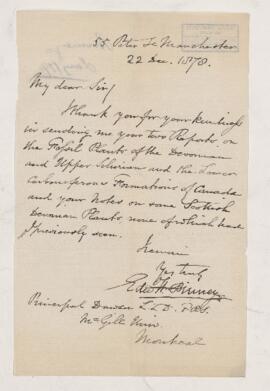 55 Peter St Manchester
22 Dec. 1878.
My dear Sir/
Thank you for your kindness
in sending me your two Reports on
the Fossil Plants of the Devonian
and Upper Silurian and the Lower
Carboniferous Formations of Canada
and your Notes on some Scottish
Devonian Plants none of which have
I previously seen.
I remain
Yrs truly
Edwd W. Binney
Principal Dawson L L D. F.R.S.
McGill Univ.
Montreal